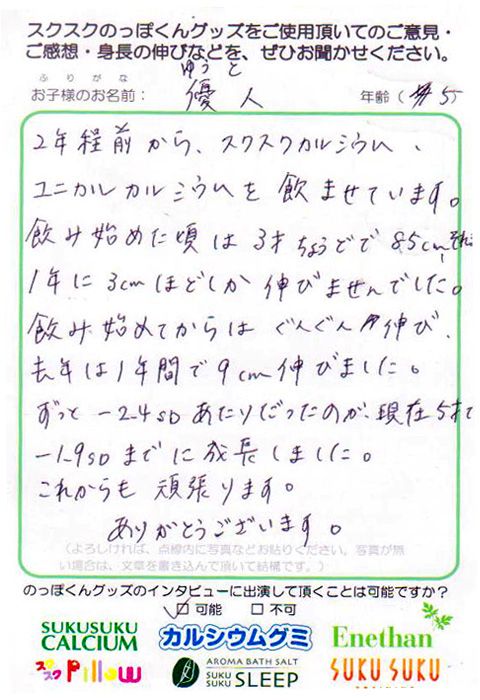 スクスクのっぽくんグッズをご使用頂いてのご意見・
ご感想・身長の伸びなどを、ぜひお聞かせください。
ふりがな ゆうと
お子様のお名前： 優人 年齢（ 5）
2年程前から、スクスクカルシウム、
ユニカルカルシウムを飲ませています。
飲み始めた頃は3才ちょうどで85cm、それ
1年に3cmほどしか伸びませんでした。
飲み始めてからはぐんぐん伸び、
去年は1年間で9cm伸びました。
ずっと-2.4SDあたりだったのが、現在5才で
-1.9SDまでに成長しました。
これからも頑張ります。
ありがとうございます。
（よろしければ、点線内に写真などお貼りください。写真が無
い場合は、文章を書き込んで頂いて結構です。）
のっぽくんグッズのインタビューに出演して頂くことは可能ですか？
☑ 可能 □ 不可
SUKUSUKU CALCIUM
カルシウムグミ
Enethan
スクスク Pillow
AROMA BATH SALT
SUKU SUKU SLEEP
SUKU SUKU